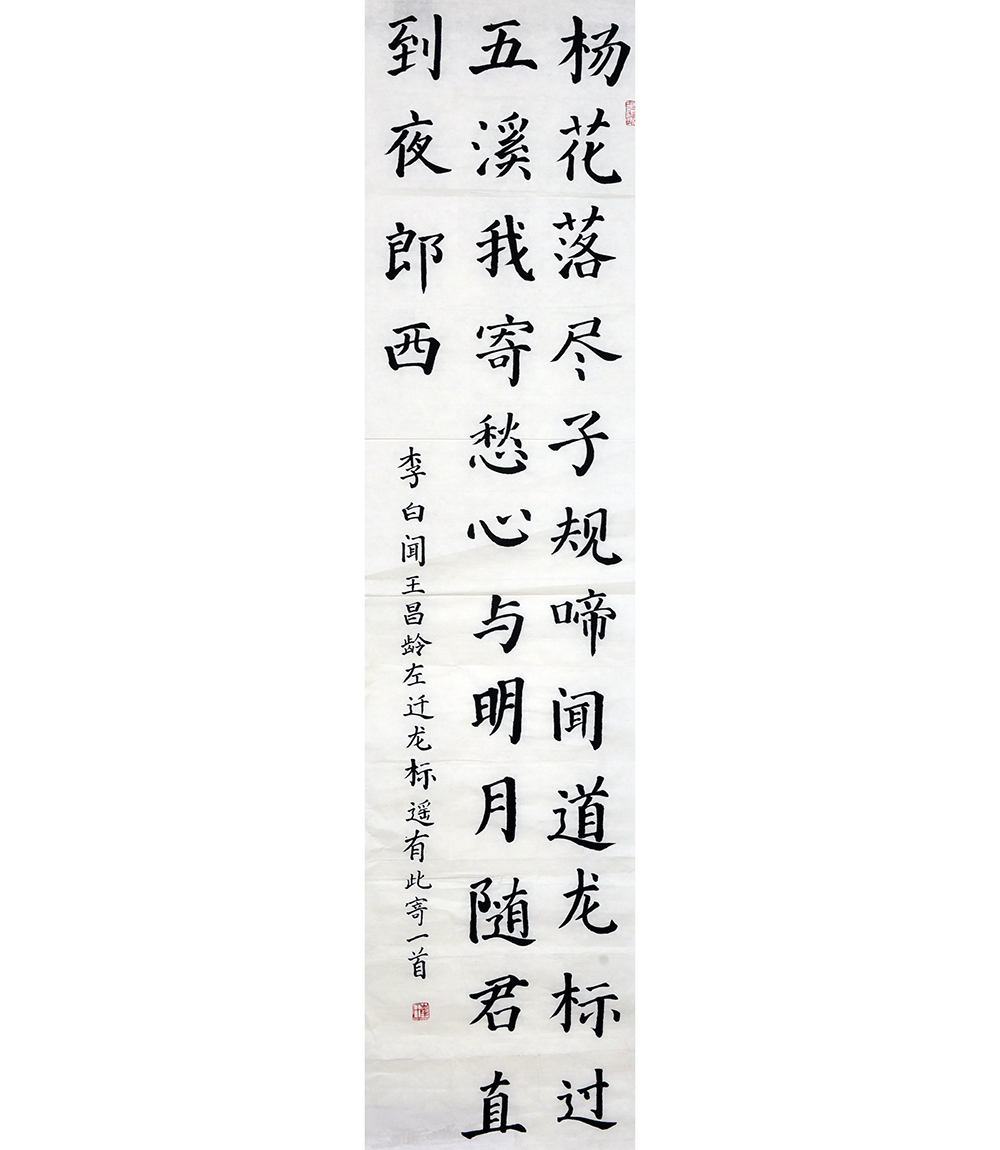 杨花落尽子规啼闻道龙标过
五溪我寄愁心与明月随君直
到夜郎西
李白闻王昌龄左迁龙标遥有此寄一首